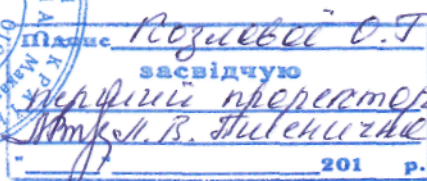 Підпис Козлової О.Г
засвідчую
перший проректор
Л.В. Пшенична
"___"_________201 р.